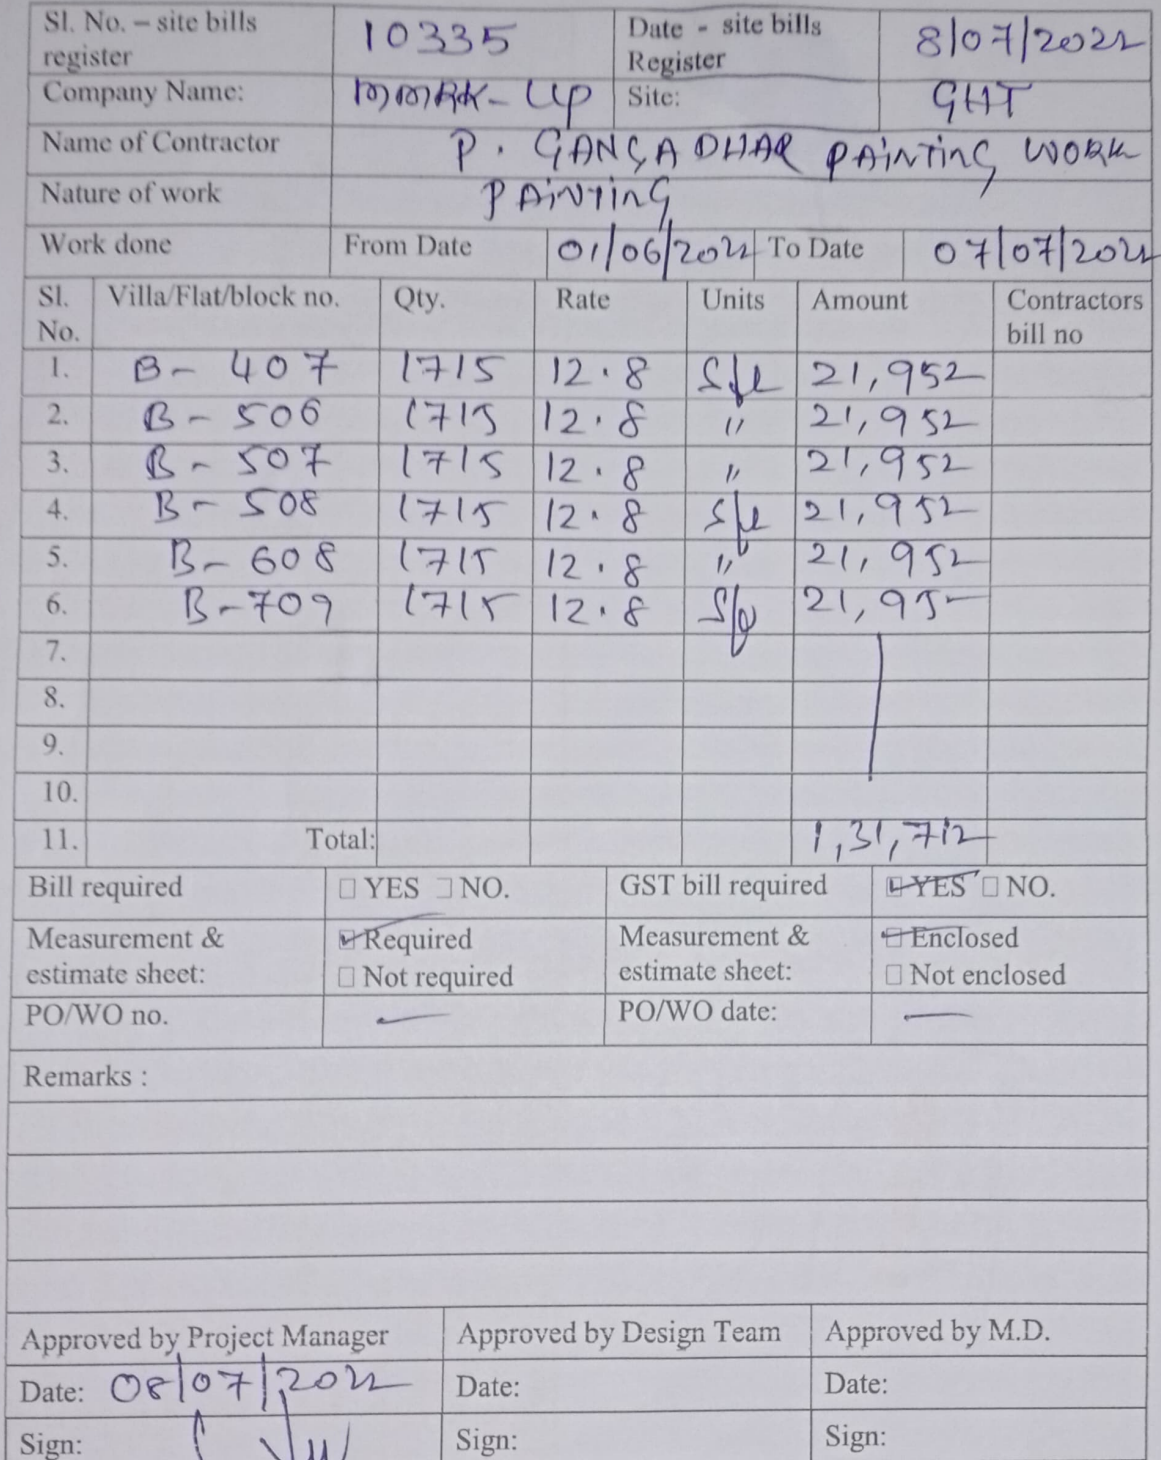 Sl. No. – site bills register 10335 Date - site bills Register 8/07/2022
Company Name: MMRK-UP Site: GHT
Name of Contractor P. GANGADHAR PAINTING WORK
Nature of work PAINTING
Work done From Date 01/06/2022 To Date 07/07/2022
Sl. No. Villa/Flat/block no. Qty. Rate Units Amount Contractors bill no
1. B- 407 1715 12.8 Sft 21,952
2. B- 506 1715 12.8 " 21,952
3. B- 507 1715 12.8 " 21,952
4. B- 508 1715 12.8 Sft 21,952
5. B- 608 1715 12.8 " 21,952
6. B-709 1715 12.8 Sft 21,952
7.
8.
9.
10.
11. Total: 1,31,712
Bill required ☐ YES ☐ NO. GST bill required ☑ YES ☐ NO.
Measurement & estimate sheet: ☑ Required Measurement & estimate sheet: ☑ Enclosed
☐ Not required ☐ Not enclosed
PO/WO no. — PO/WO date: —
Remarks :
Approved by Project Manager Approved by Design Team Approved by M.D.
Date: 08/07/2022 Date: Date:
Sign: Sign: Sign: